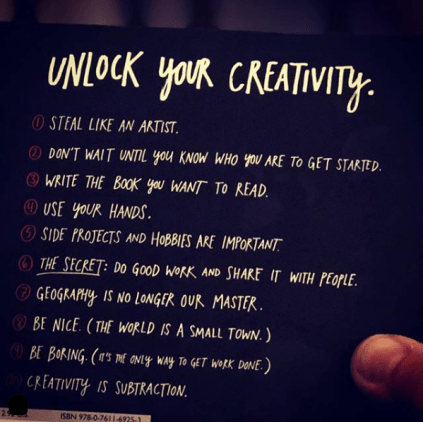 UNLOCK YOUR CREATIVITY.
1 STEAL LIKE AN ARTIST.
2 DON'T WAIT UNTIL YOU KNOW WHO YOU ARE TO GET STARTED.
3 WRITE THE BOOK YOU WANT TO READ.
4 USE YOUR HANDS.
5 SIDE PROJECTS AND HOBBIES ARE IMPORTANT.
6 THE SECRET: DO GOOD WORK AND SHARE IT WITH PEOPLE.
7 GEOGRAPHY IS NO LONGER OUR MASTER.
8 BE NICE. (THE WORLD IS A SMALL TOWN.)
9 BE BORING. (IT'S THE ONLY WAY TO GET WORK DONE.)
CREATIVITY IS SUBTRACTION.
ISBN 978-0-7611-6925-3